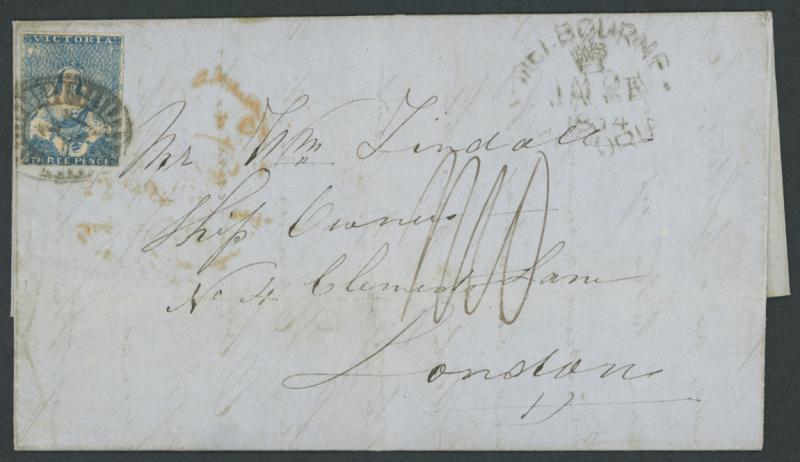 VICTORIA
THREE PENCE
MELBOURNE
JA 2
1854
Mr Wm Tindall
Ship Owner
No 4 Clements Lane
London